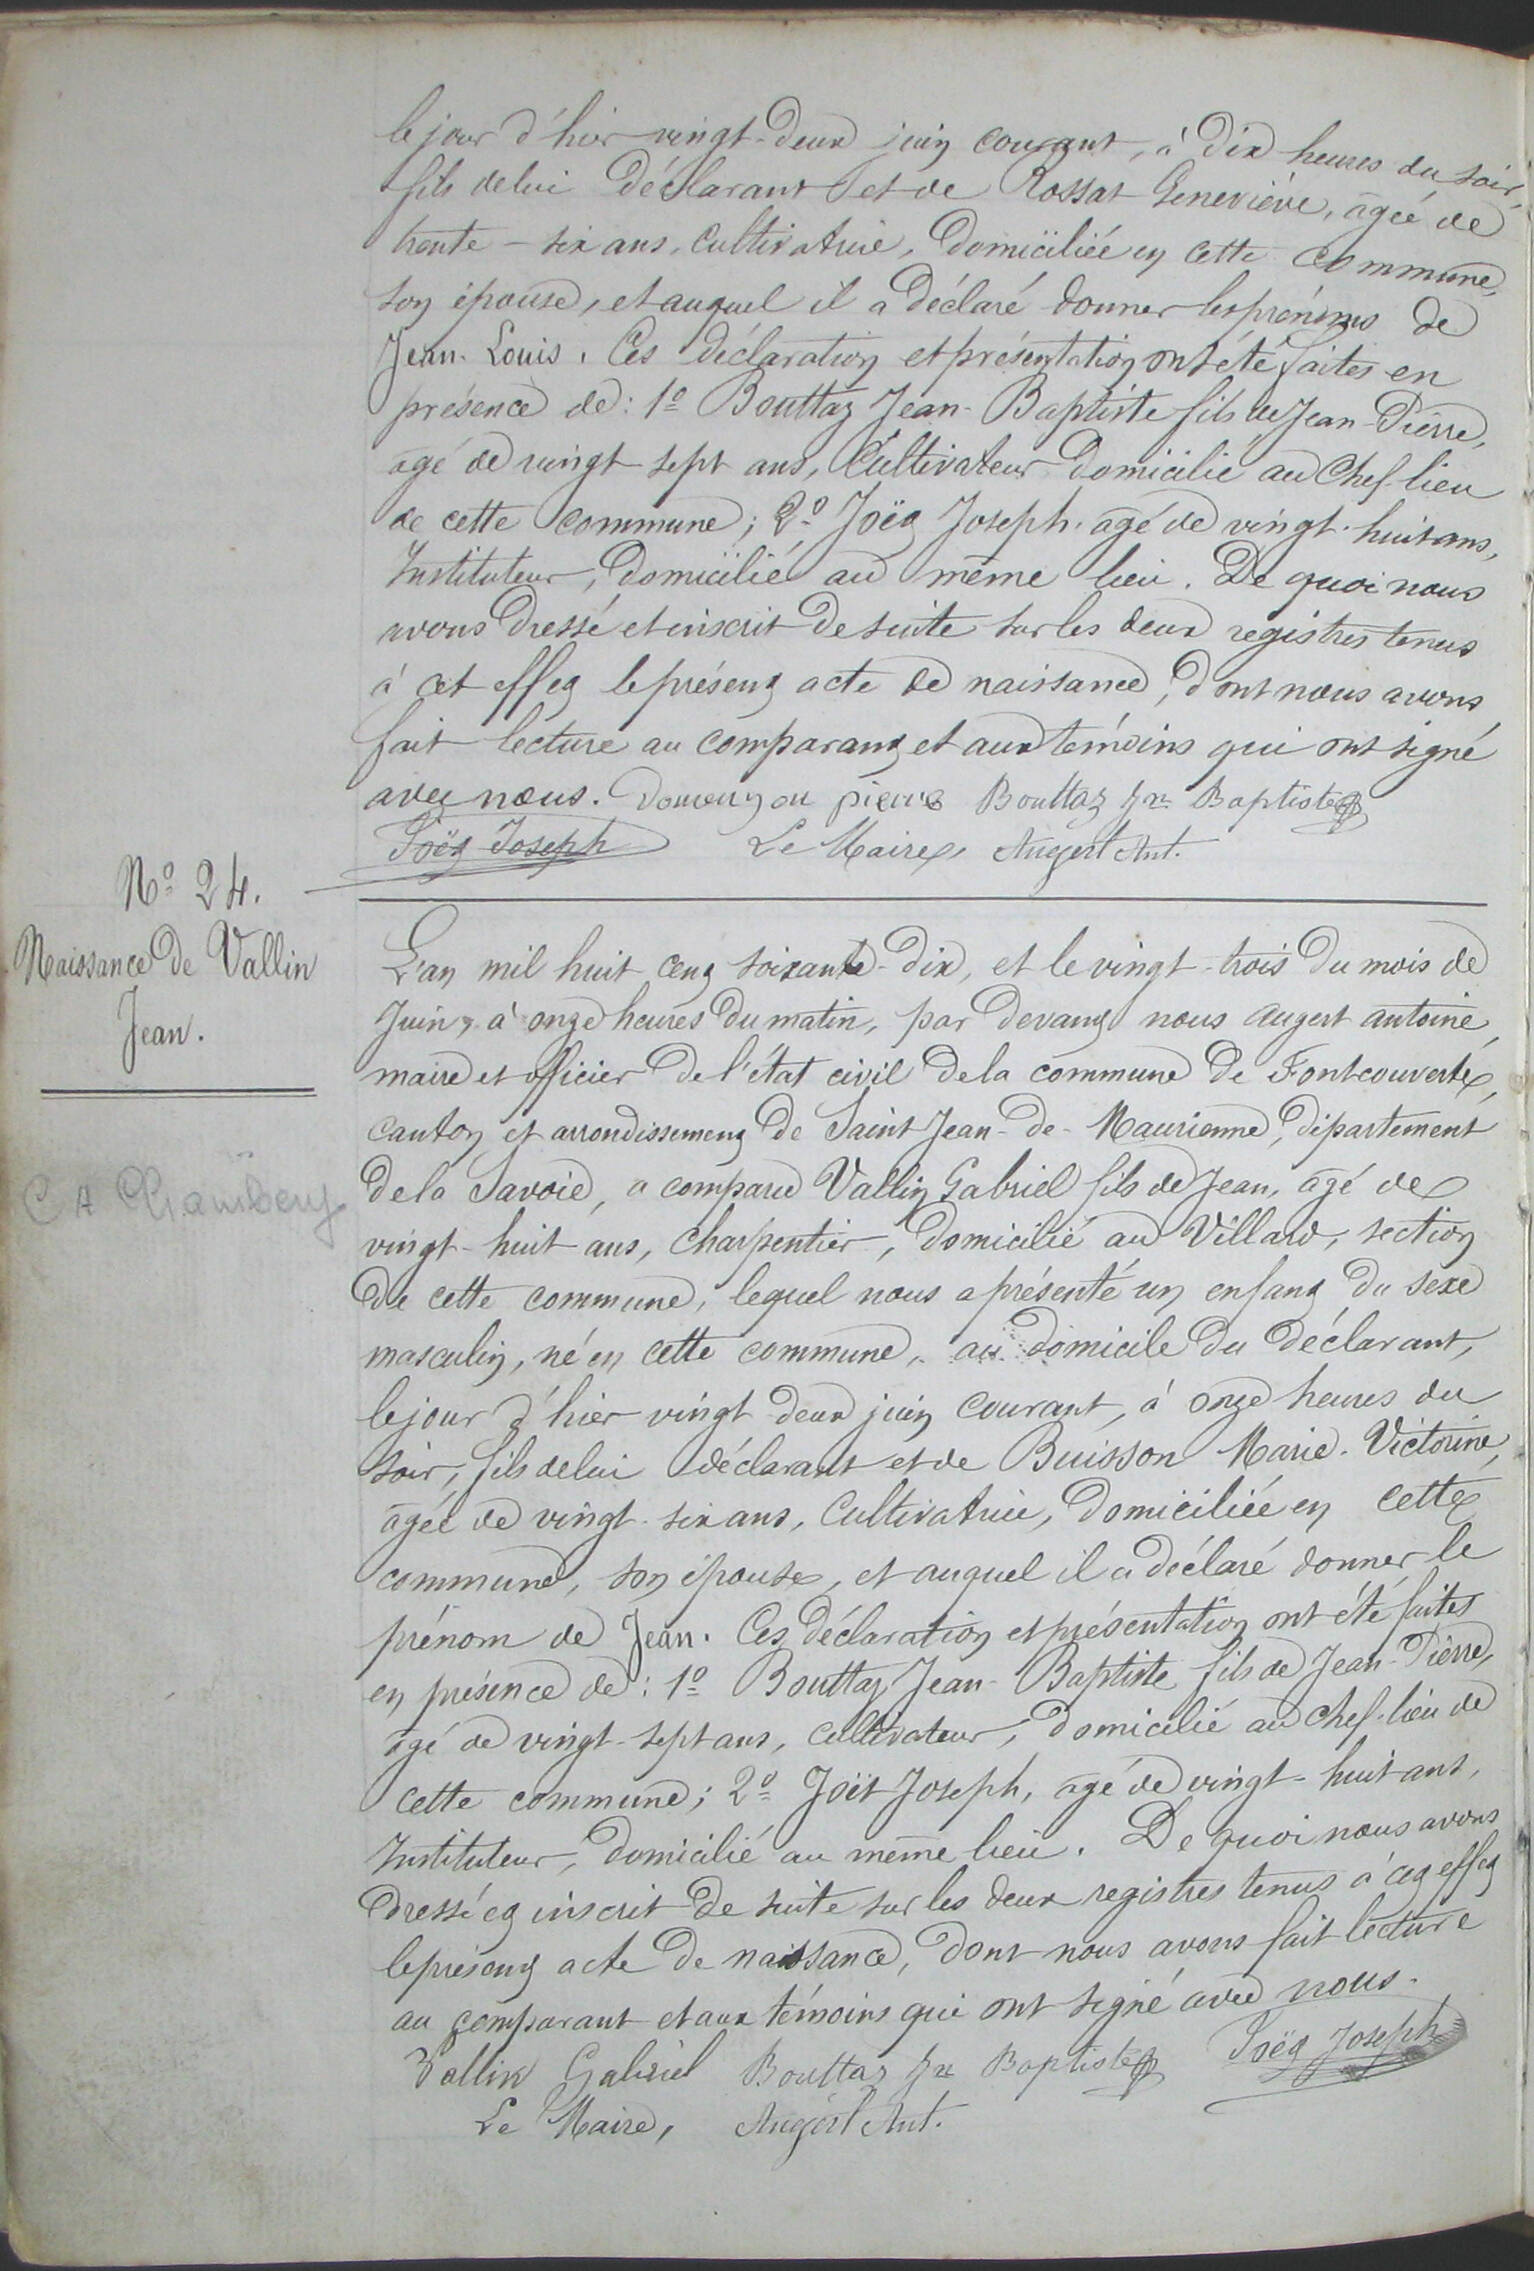 le jour d'hier vingt-deux juin courant, à dix heures du soir,
fils de lui déclarant et de Rossat Geneviève, âgée de
trente-six ans, cultivatrice, domiciliée en cette commune,
son épouse, et auquel il a déclaré donner les prénoms de
Jean-Louis. Ces déclaration et présentation ont été faites en
présence de: 1º Bouttaz Jean-Baptiste fils de Jean-Pierre,
âgé de vingt-sept ans, Cultivateur domicilié au Chef-lieu
de cette commune; 2º Joët Joseph, âgé de vingt-huit ans,
Instituteur, domicilié au même lieu. De quoi nous
avons dressé et inscrit de suite sur les deux registres tenus
à cet effet le présent acte de naissance, dont nous avons
fait lecture au comparant et aux témoins qui ont signé
avec nous. pierre Bouttaz Jn Baptiste
Joët Joseph Le Maire, Augert Ant.
Nº 24.
Naissance de Vallin
Jean.
C A Chambery
L'an mil huit cent soixante-dix, et le vingt-trois du mois de
Juin, à onze heures du matin, par devant nous Augert antoine,
maire et officier de l'état civil de la commune de Fontcouverte,
canton et arrondissement de Saint Jean-de-Maurienne, département
de la Savoie, a comparu Vallin Gabriel fils de Jean, âgé de
vingt-huit ans, Charpentier, domicilié au Villard, section
de cette commune, lequel nous a présenté un enfant du sexe
masculin, né en cette commune, au domicile du déclarant,
le jour d'hier vingt deux juin courant, à onze heures du
soir, fils de lui déclarant et de Buisson Marie-Victorine,
âgée de vingt-six ans, Cultivatrice, domiciliée en cette
commune, son épouse, et auquel il a déclaré donner le
prénom de Jean. Ces déclaration et présentation ont été faites
en présence de: 1º Bouttaz Jean-Baptiste fils de Jean-Pierre,
âgé de vingt-sept ans, cultivateur, domicilié au chef-lieu de
cette commune; 2º Joët Joseph, âgé de vingt-huit ans,
Instituteur, domicilié au même lieu. De quoi nous avons
dressé et inscrit de suite sur les deux registres tenus à cet effet
le présent acte de naissance, dont nous avons fait lecture
au comparant et aux témoins qui ont signé avec nous.
Vallin Gabriel Bouttaz Jn Baptiste Joët Joseph
Le Maire, Augert Ant.